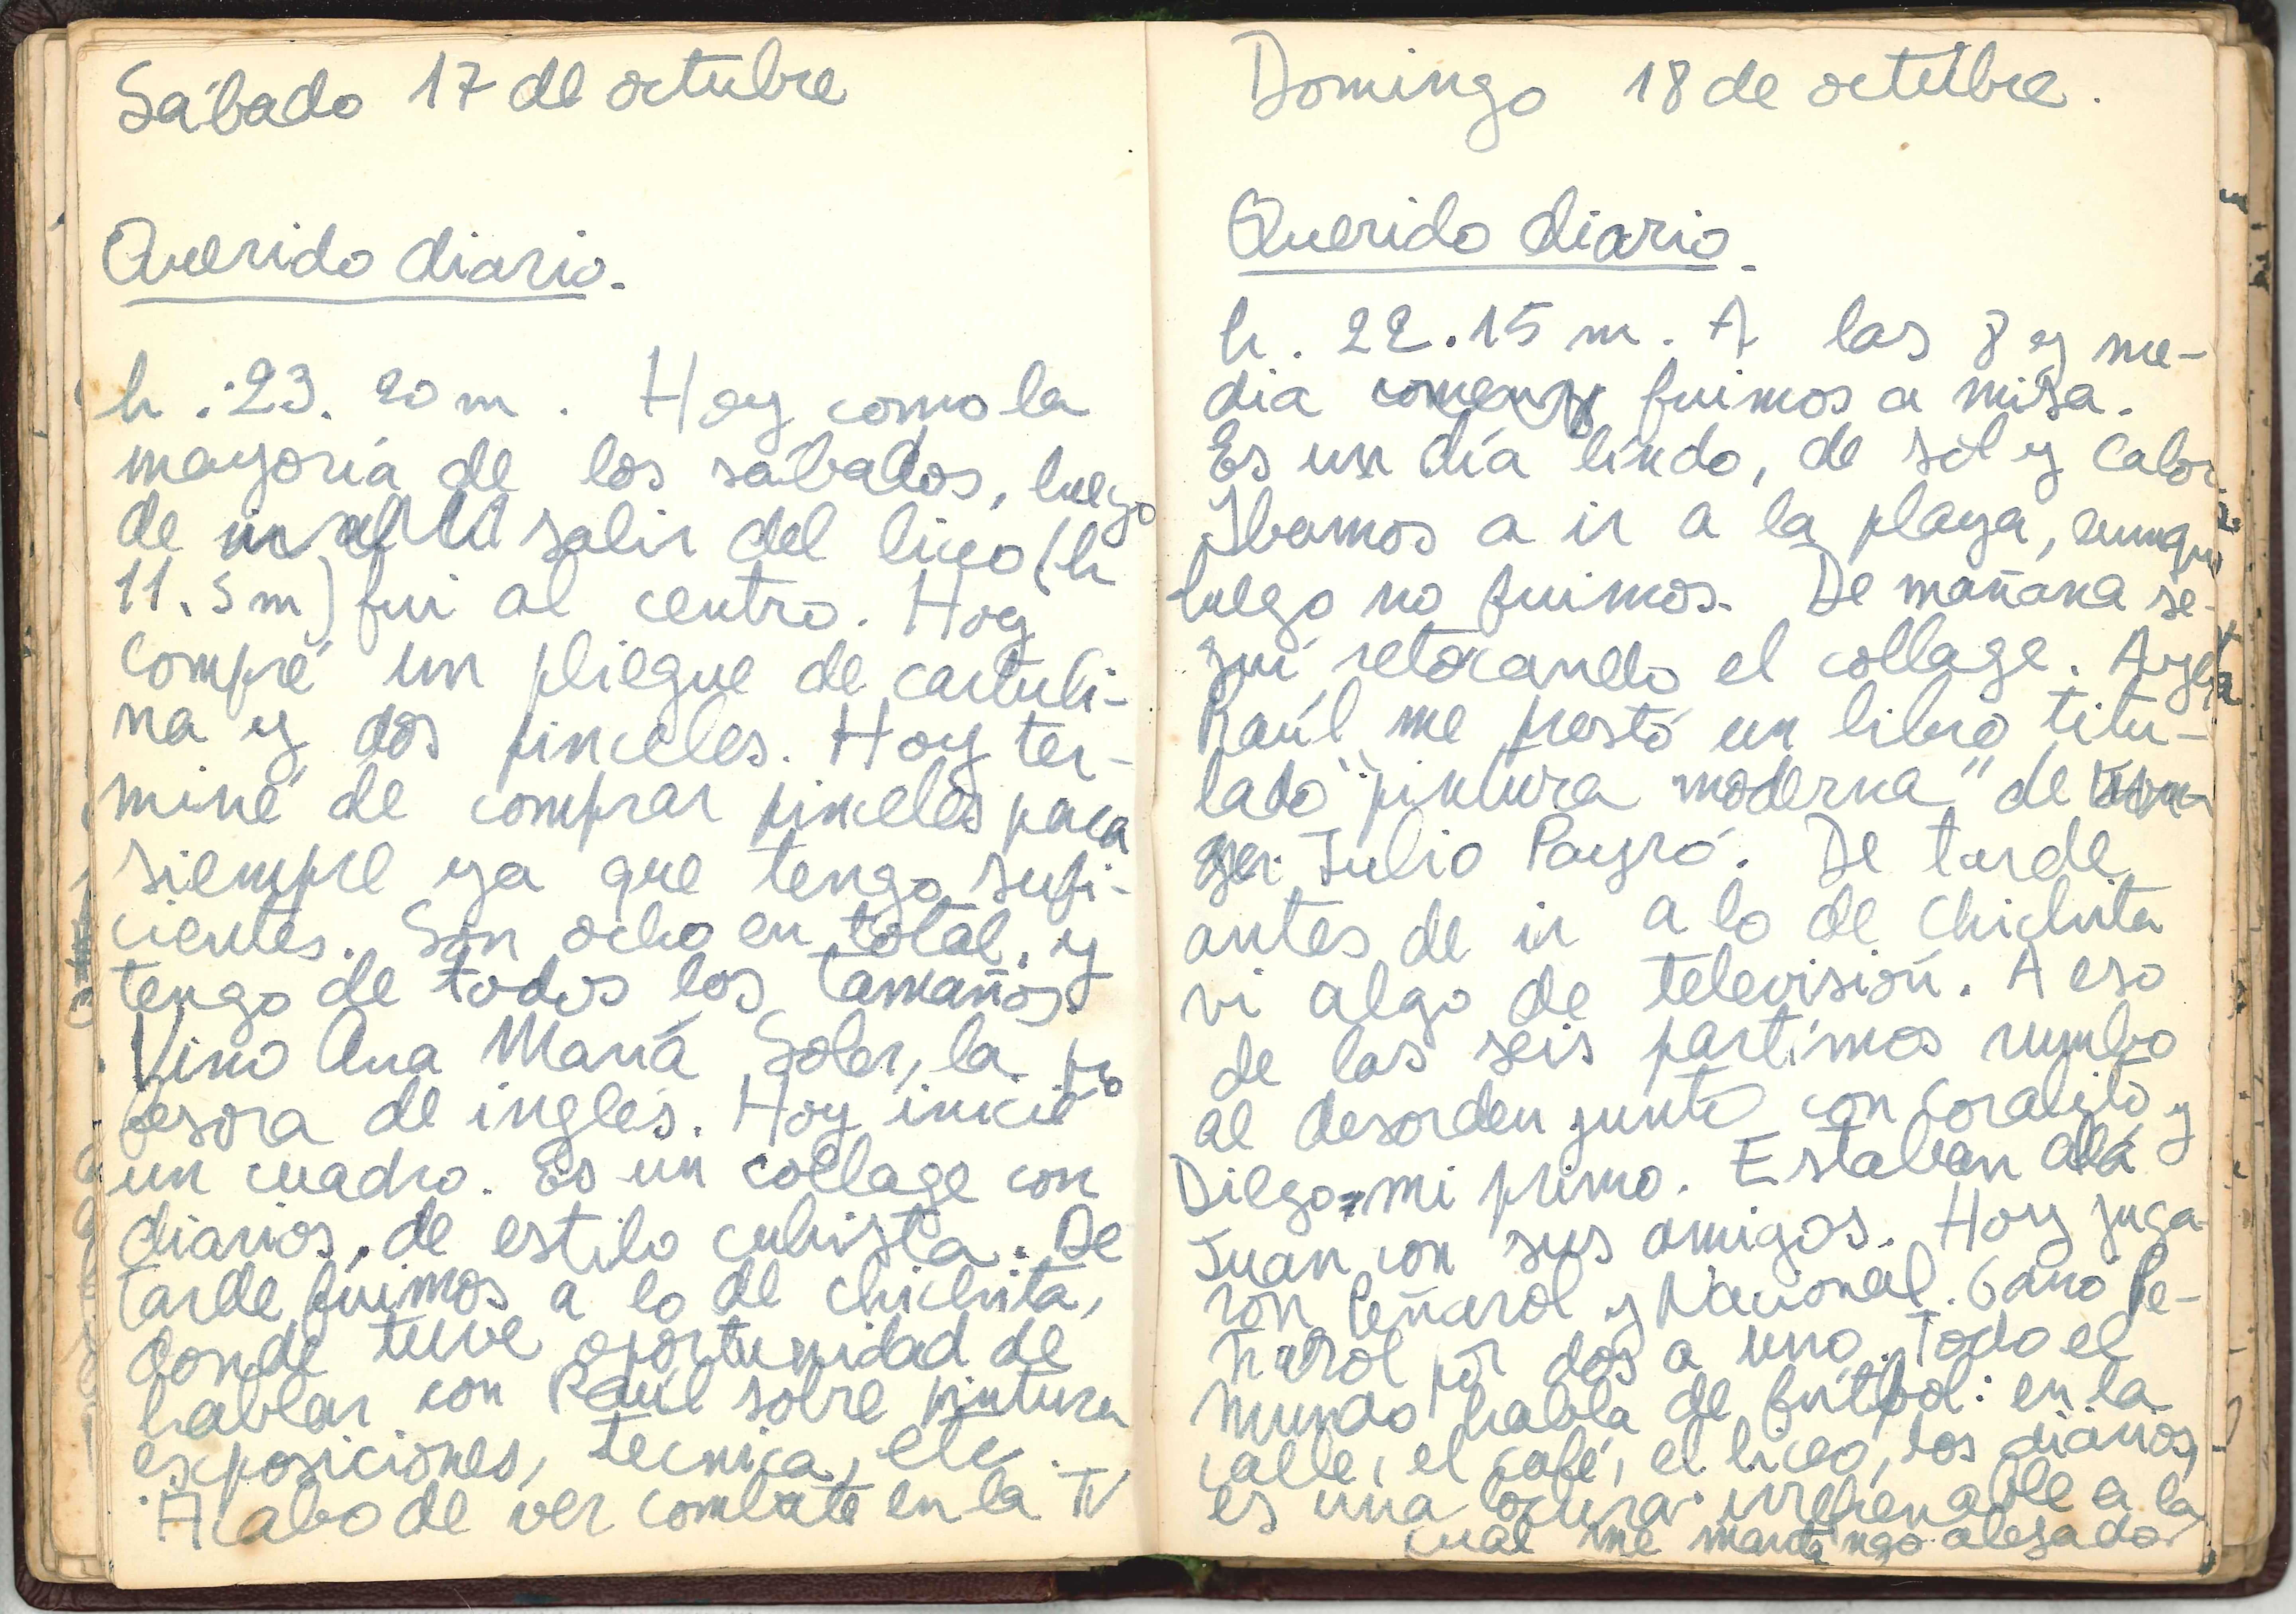 Sábado 17 de octubre
Querido diario.
h. 23. 20 m. Hoy como la
mayoría de los sábados, luego
de salir del liceo (h
11. 5 m) fui al centro. Hoy
compré un pliegue de cartuli-
na y dos pinceles. Hoy ter-
miné de comprar pinceles para
siempre ya que tengo sufi-
cientes. Son ocho en total, y
tengo de todos los tamaños.
Vino Ana María Soler, la pro
fesora de inglés. Hoy inicié
un cuadro. Es un collage con
diarios, de estilo cubista. De
tarde fuimos a lo de Chichita,
donde tuve oportunidad de
hablar con Raúl sobre pintura
exposiciones, tecnica, etc.
Acabo de ver combate en la TV
Domingo 18 de octubre.
Querido diario.
h. 22.15 m. A las 8 y me-
dia fuimos a misa.
Es un día lindo, de sol y calor.
Ibamos a ir a la playa, aunque
luego no fuimos. De mañana se-
guí retocando el collage. Ayer
Raúl me prestó un libro titu-
lado "pintura moderna" de
Julio Payró. De tarde
antes de ir a lo de Chichita
vi algo de televisión. A eso
de las seis partimos rumbo
al desorden junto con Coralito y
Diego, mi primo. Estaban allá
Juan con sus amigos. Hoy juga-
ron Peñarol y Nacional. Gano Pe-
ñarol por dos a uno. Todo el
mundo habla de fútbol: en la
calle, el café, el liceo, los diarios,
es una locura irrefrenable a la
cual me mantengo alejado